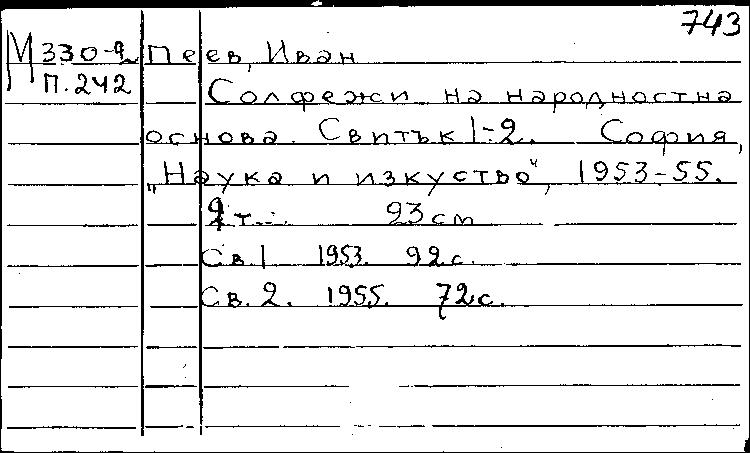 743
М 330-2 Пеев, Иван
П.242
Солфежи на народностна
основа. Свитък 1-2. София,
„Наука и изкуство", 1953-55.
2 т. 23 cm
Св. 1 1953. 92 с.
Св. 2. 1955. 72 с.